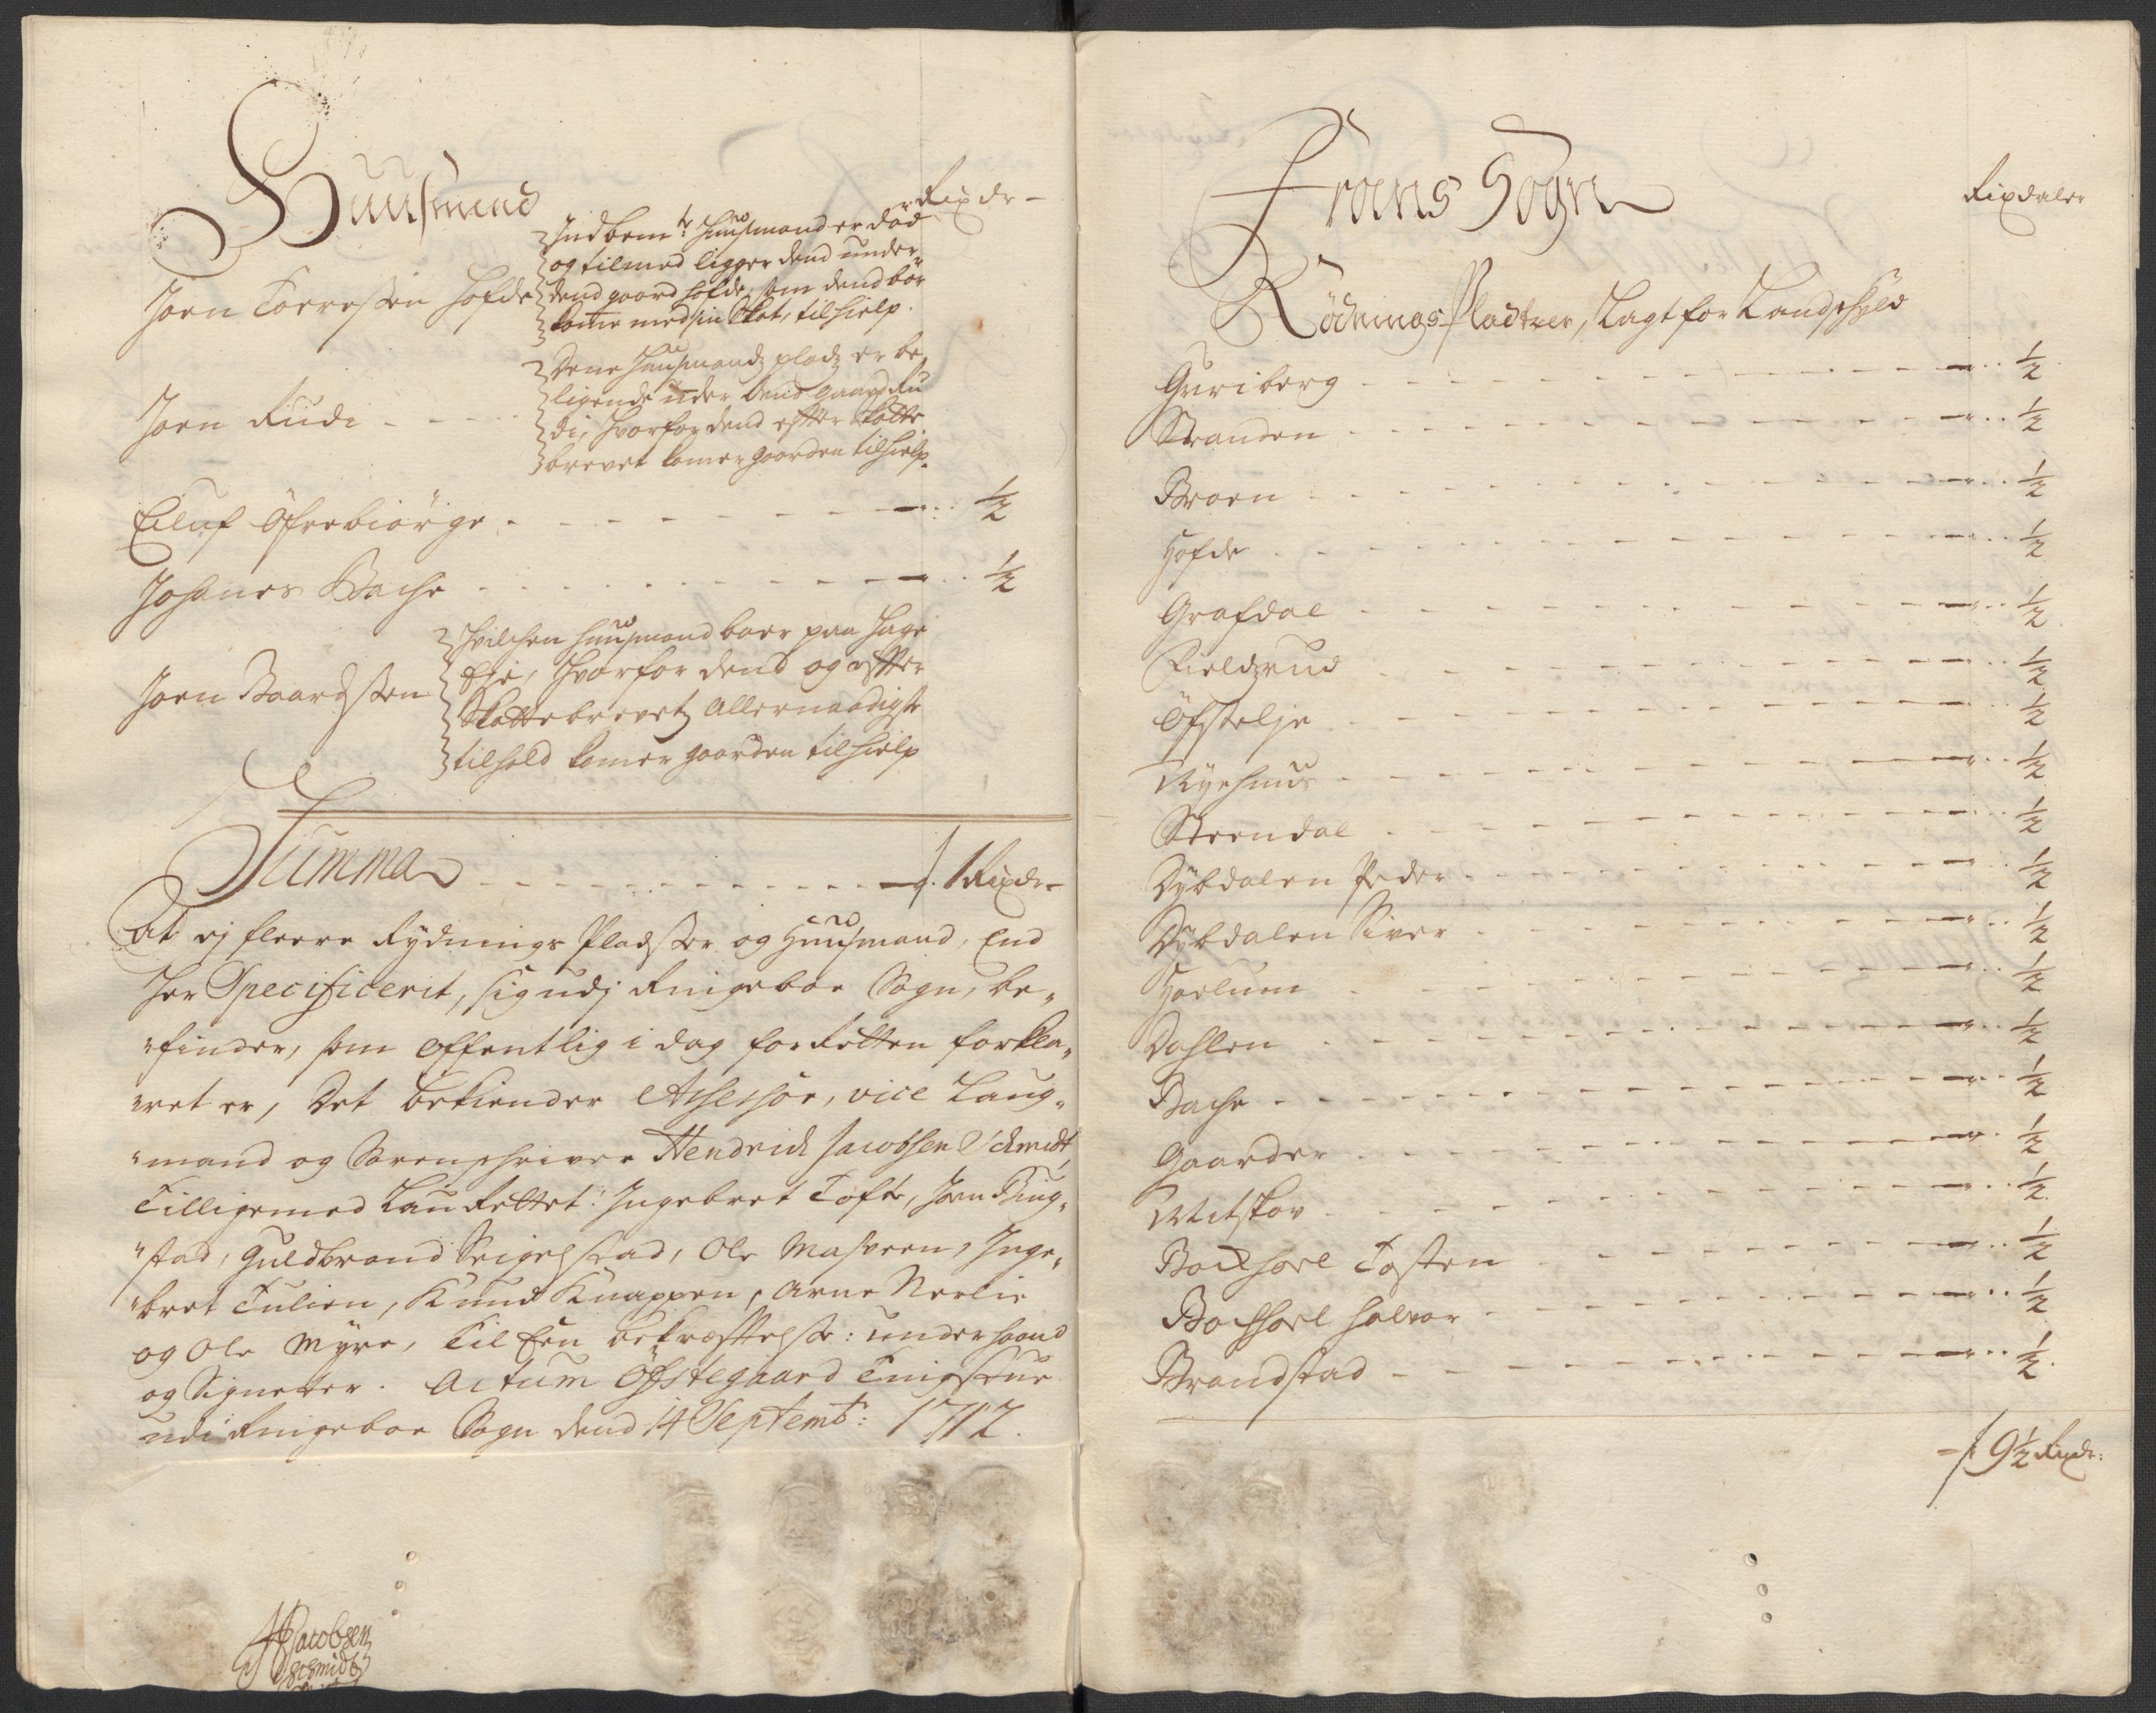 Huusmend
Rixdr
Joen Torressen Hofde
Indbemte Huusmand er död
og tilmed ligger dend under
dend gaard Hofde, som dend bör
kome med sin Skat, til hielp.
Joen Rudi - -
Dene Huusmandz pladz er be-
ligende under dend gaard Ru
di, Hvorfor dend efter Skatte
brevet komer gaarden til hielp.
Eiluf Öfrebiörge - - - - ½
Johanes Bache - - - - ½
Joen Baardssen
Hvilchen Huusmand boer paa Hage
Eje, Hvorfor dend og efter
Skattebrevetz Allernaadigste
tilhold komer gaarden til hielp
Summa - - - - 1 Rixdr
At ej fleere Rydnings Pladser og Huusmænd, End
her Specificerit, sig udj Ringeboe Sogn, be-
finder, som offentlig i dag for Retten forkla-
ret er, Det bekiender Assessör, vice Laug-
mand og Sorenschriver Hendrich Jacobsen Schmidt,
Tilligemed LauRettet: Ingebret Tofte, Joen
stad, Guldbrand Seigelstad, Ole Maspren, Inge-
bret Tulien, Knud Knappen, Arne Norlie
og Ole Myre, Til Een bekræfftelse: under haand
og Signeter. Actum Öfstegaard Tingstue
udi Ringeboe Sogn dend 14 Septembr: 1712.
HJacobsen
Schmidt
Frons Sogn
Rixdaler
Rödnings Pladtzer, Lagt for Landschyld
Guriberg - - - - ½
Stranden - - - - ½
Broen - - - - ½
Hofde - - - - ½
Grafdal - - - - ½
Fieldzrud - - - - ½
Öfstelje - - - - ½
Ryehuus - - - - ½
Steendal - - - - ½
Dybdalen Peder - - - - ½
Dybdalen Siver - - - - ½
Horlum - - - - ½
Dahlen - - - - ½
Bache - - - - ½
Gaarder - - - - ½
Metskov - - - - ½
Bochhoel Tosten - - - - ½
Bochhoel Halvor - - - - ½
Brandstad - - - - ½
9½ Rixdr: